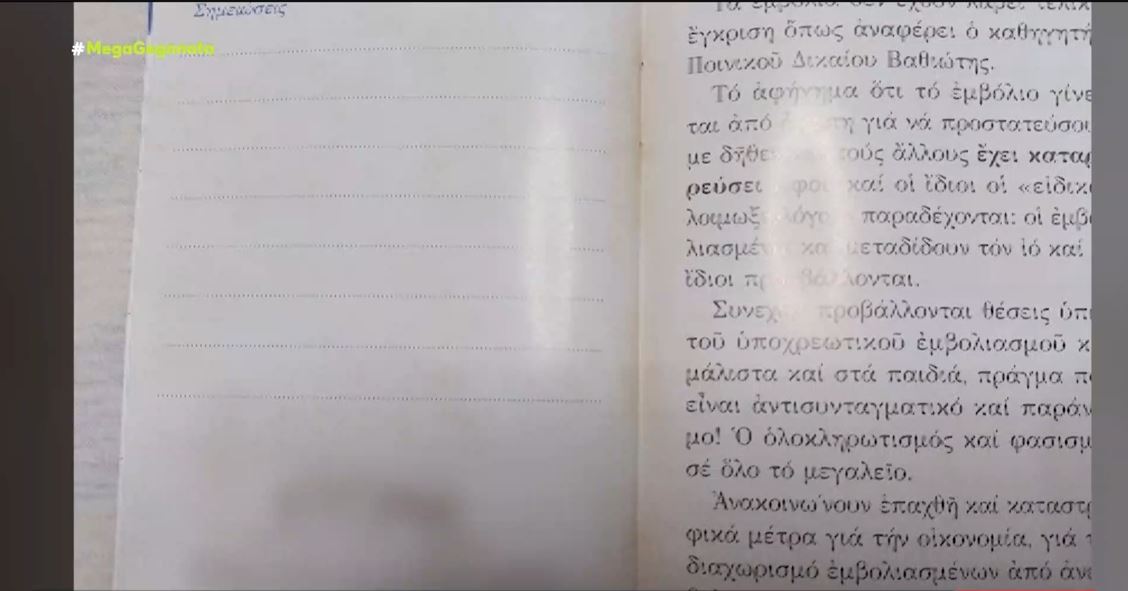 Σημειώσεις
#MegaGegonota
ἔγκριση ὅπως ἀναφέρει ὁ καθηγητή
Ποινικοῦ Δικαίου Βαθιώτης.
Τό ἀφήγημα ὅτι τό ἐμβόλιο γίνε
ται ἀπό γιά νά προστατεύσου
με δῆθεν τούς ἄλλους ἔχει καταρ
ρεύσει καί οἱ ἴδιοι οἱ «εἰδικο
παραδέχονται: οἱ ἐμβο
μεταδίδουν τόν ἰό καί
ἴδιοι
προβάλλονται θέσεις ὑπ
τοῦ ὑποχρεωτικοῦ ἐμβολιασμοῦ κ
μάλιστα καί στά παιδιά, πράγμα π
εἶναι ἀντισυνταγματικό καί παράν
μο! Ὁ ὁλοκληρωτισμός καί φασισμ
σέ ὅλο τό μεγαλεῖο.
Ἀνακοινώνουν ἐπαχθῆ καί καταστρ
φικά μέτρα γιά τήν οἰκονομία, γιά τ
διαχωρισμό ἐμβολιασμένων ἀπό ἀνε